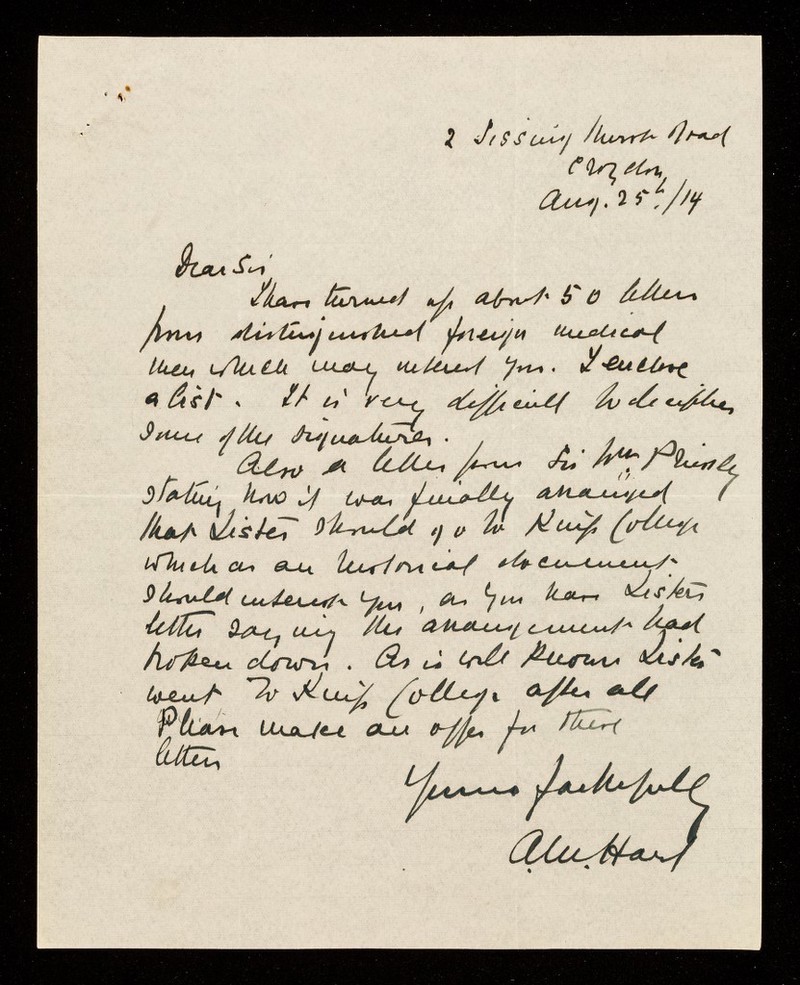 2 Road
Croydon
Aug. 25th/14
Dear Sir
I have turned up about 50 letters
from distinguished foreign medical
men which may interest you. I enclose
a list. It is very difficult to decipher
some of the signatures.
Also a letter from Sir Wm Priestly
stating how it was finally arranged
that Lister should go to Kings College
which as an historical document
should interest you, as you have Listers
letter saying the arrangement had
broken down. As is well known Lister
went to Kings College after all
Please make an offer for these
letters
Yours faithfully